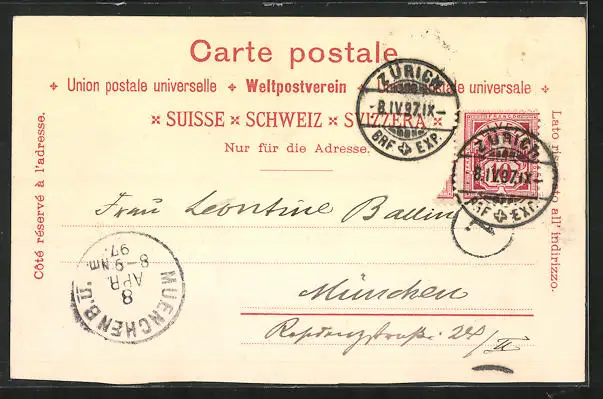 Carte postale
✣ Union postale universelle ✣ Weltpostverein ✣ Unione postale universale ✣
SUISSE × SCHWEIZ × SVIZZERA
Nur für die Adresse.
Côté réservé à l'adresse.
Lato riservato all' indirizzo.
ZÜRICH
8.IV.97.IX
BRF. EXP.
ZÜRICH
8.IV.97.IX
BRF. EXP.
10
Frau Leontine Ballin
München
Residenzstraße 24/II
MUENCHEN B.P. II.
8
APR.
8-9 Nm.
97.